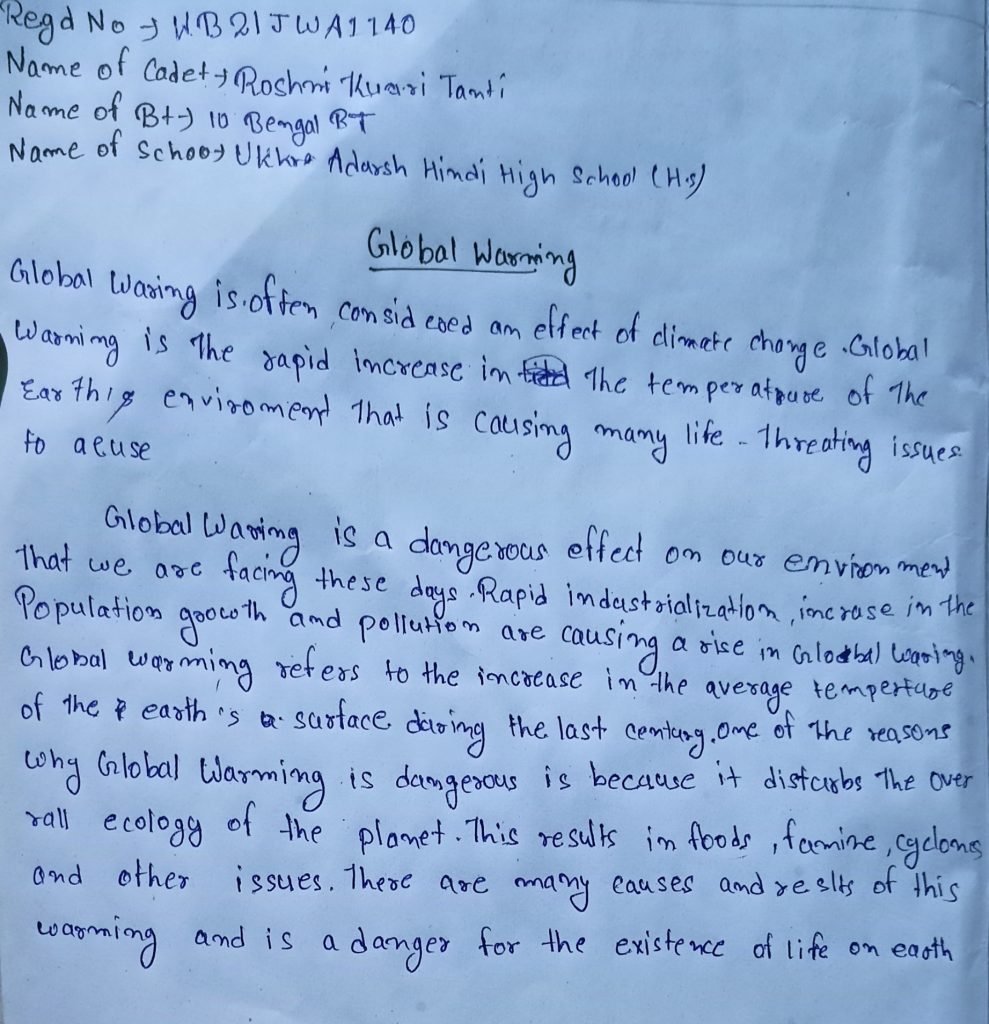 Regd No → WB21JWA1140
Name of Cadet → Roshni Kuari Tanti
Name of Bt → 10 Bengal BT
Name of School → Ukhra Adarsh Hindi High School (H.s)
Global Warming
Global Waring is often considered an effect of climate change. Global
Warming is the rapid increase in the temperature of the
Earthis enviroment that is causing many life - threating issues
to acuse
Global Waring is a dangerous effect on our environment
that we are facing these days. Rapid industrialization, incrase in the
Population growth and pollution are causing a rise in Global Waring.
Global warming refers to the increase in the average temperture
of the earth's surface during the last century. One of the reasons
why Global Warming is dangerous is because it disturbs the over
rall ecology of the planet. This results in floods, famine, cyclones
and other issues. There are many causes and reslts of this
warming and is a danger for the existence of life on earth